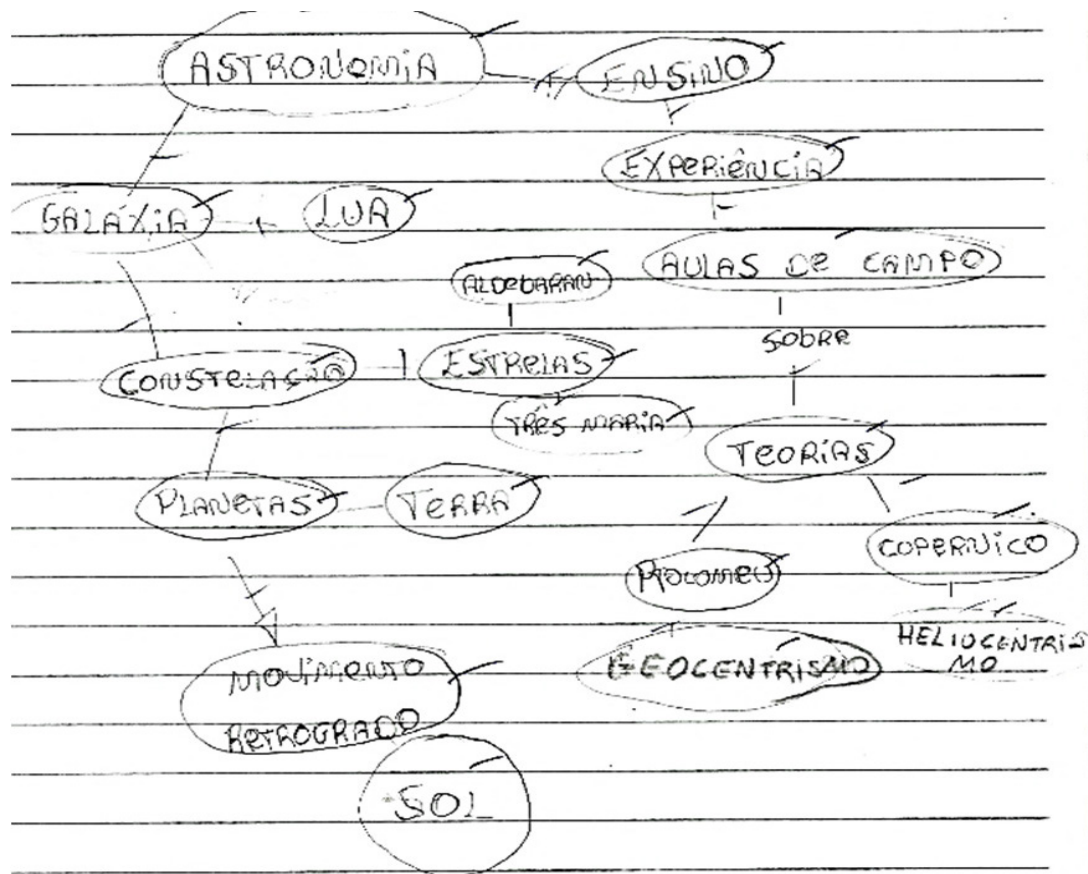 ASTRONOMIA
ENSINO
EXPERIÊNCIA
GALÁXIA
LUA
AULAS DE CAMPO
ALDEBARAN
SOBRE
CONSTELAÇÃO
ESTRELAS
TRÊS MARIA
TEORIAS
PLANETAS
TERRA
COPERNICO
PTOLOMEU
HELIOCENTRIS
MO
GEOCENTRISMO
MOVIMENTO
RETROGRADO
SOL